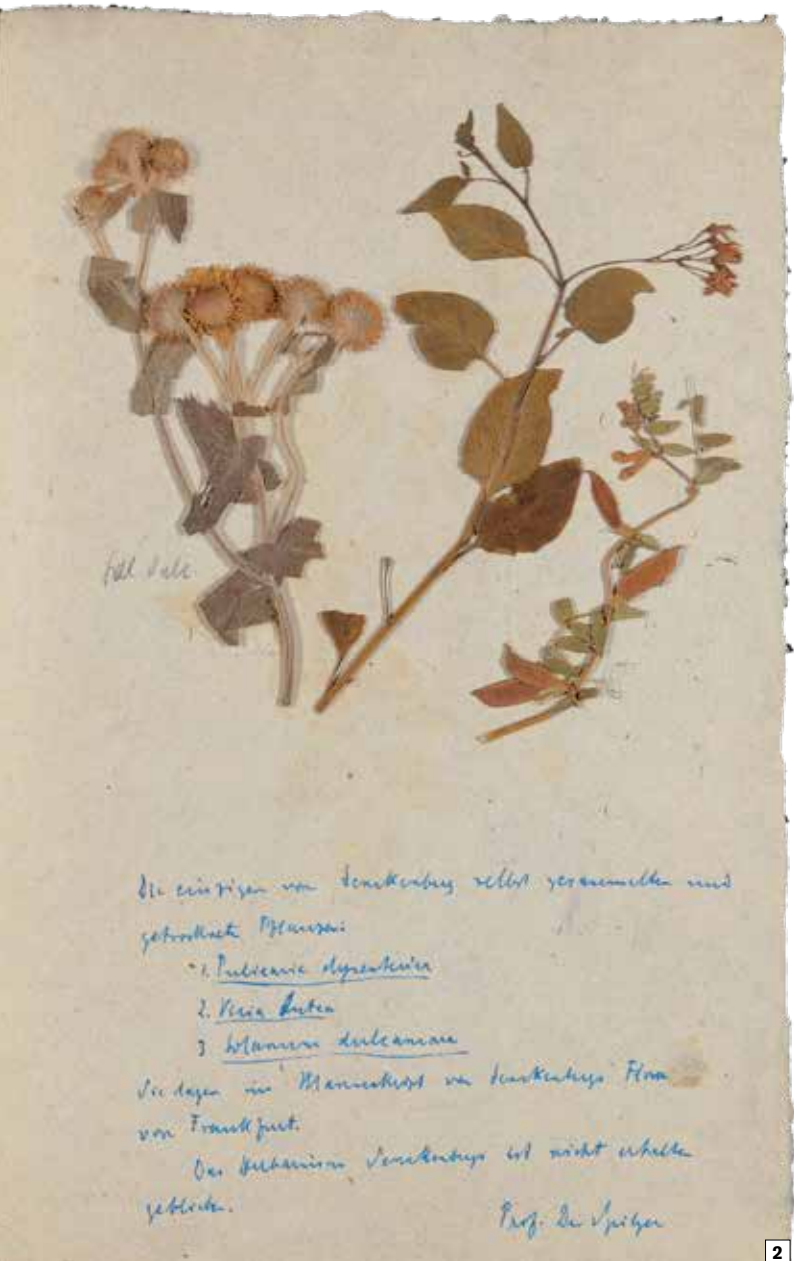 Die einzigen von Senckenberg selbst gesammelten und
getrocknete Pflanzen:
1. Pulicaria dysenterica
2. Vicia lutea
3 Solanum dulcamara
Sie lagen im Manuskript von Senckenbergs Flora
von Frankfurt.
Das Herbarium Senckenbergs ist nicht erhalten
geblieben.
Prof. Dr Spilger
2